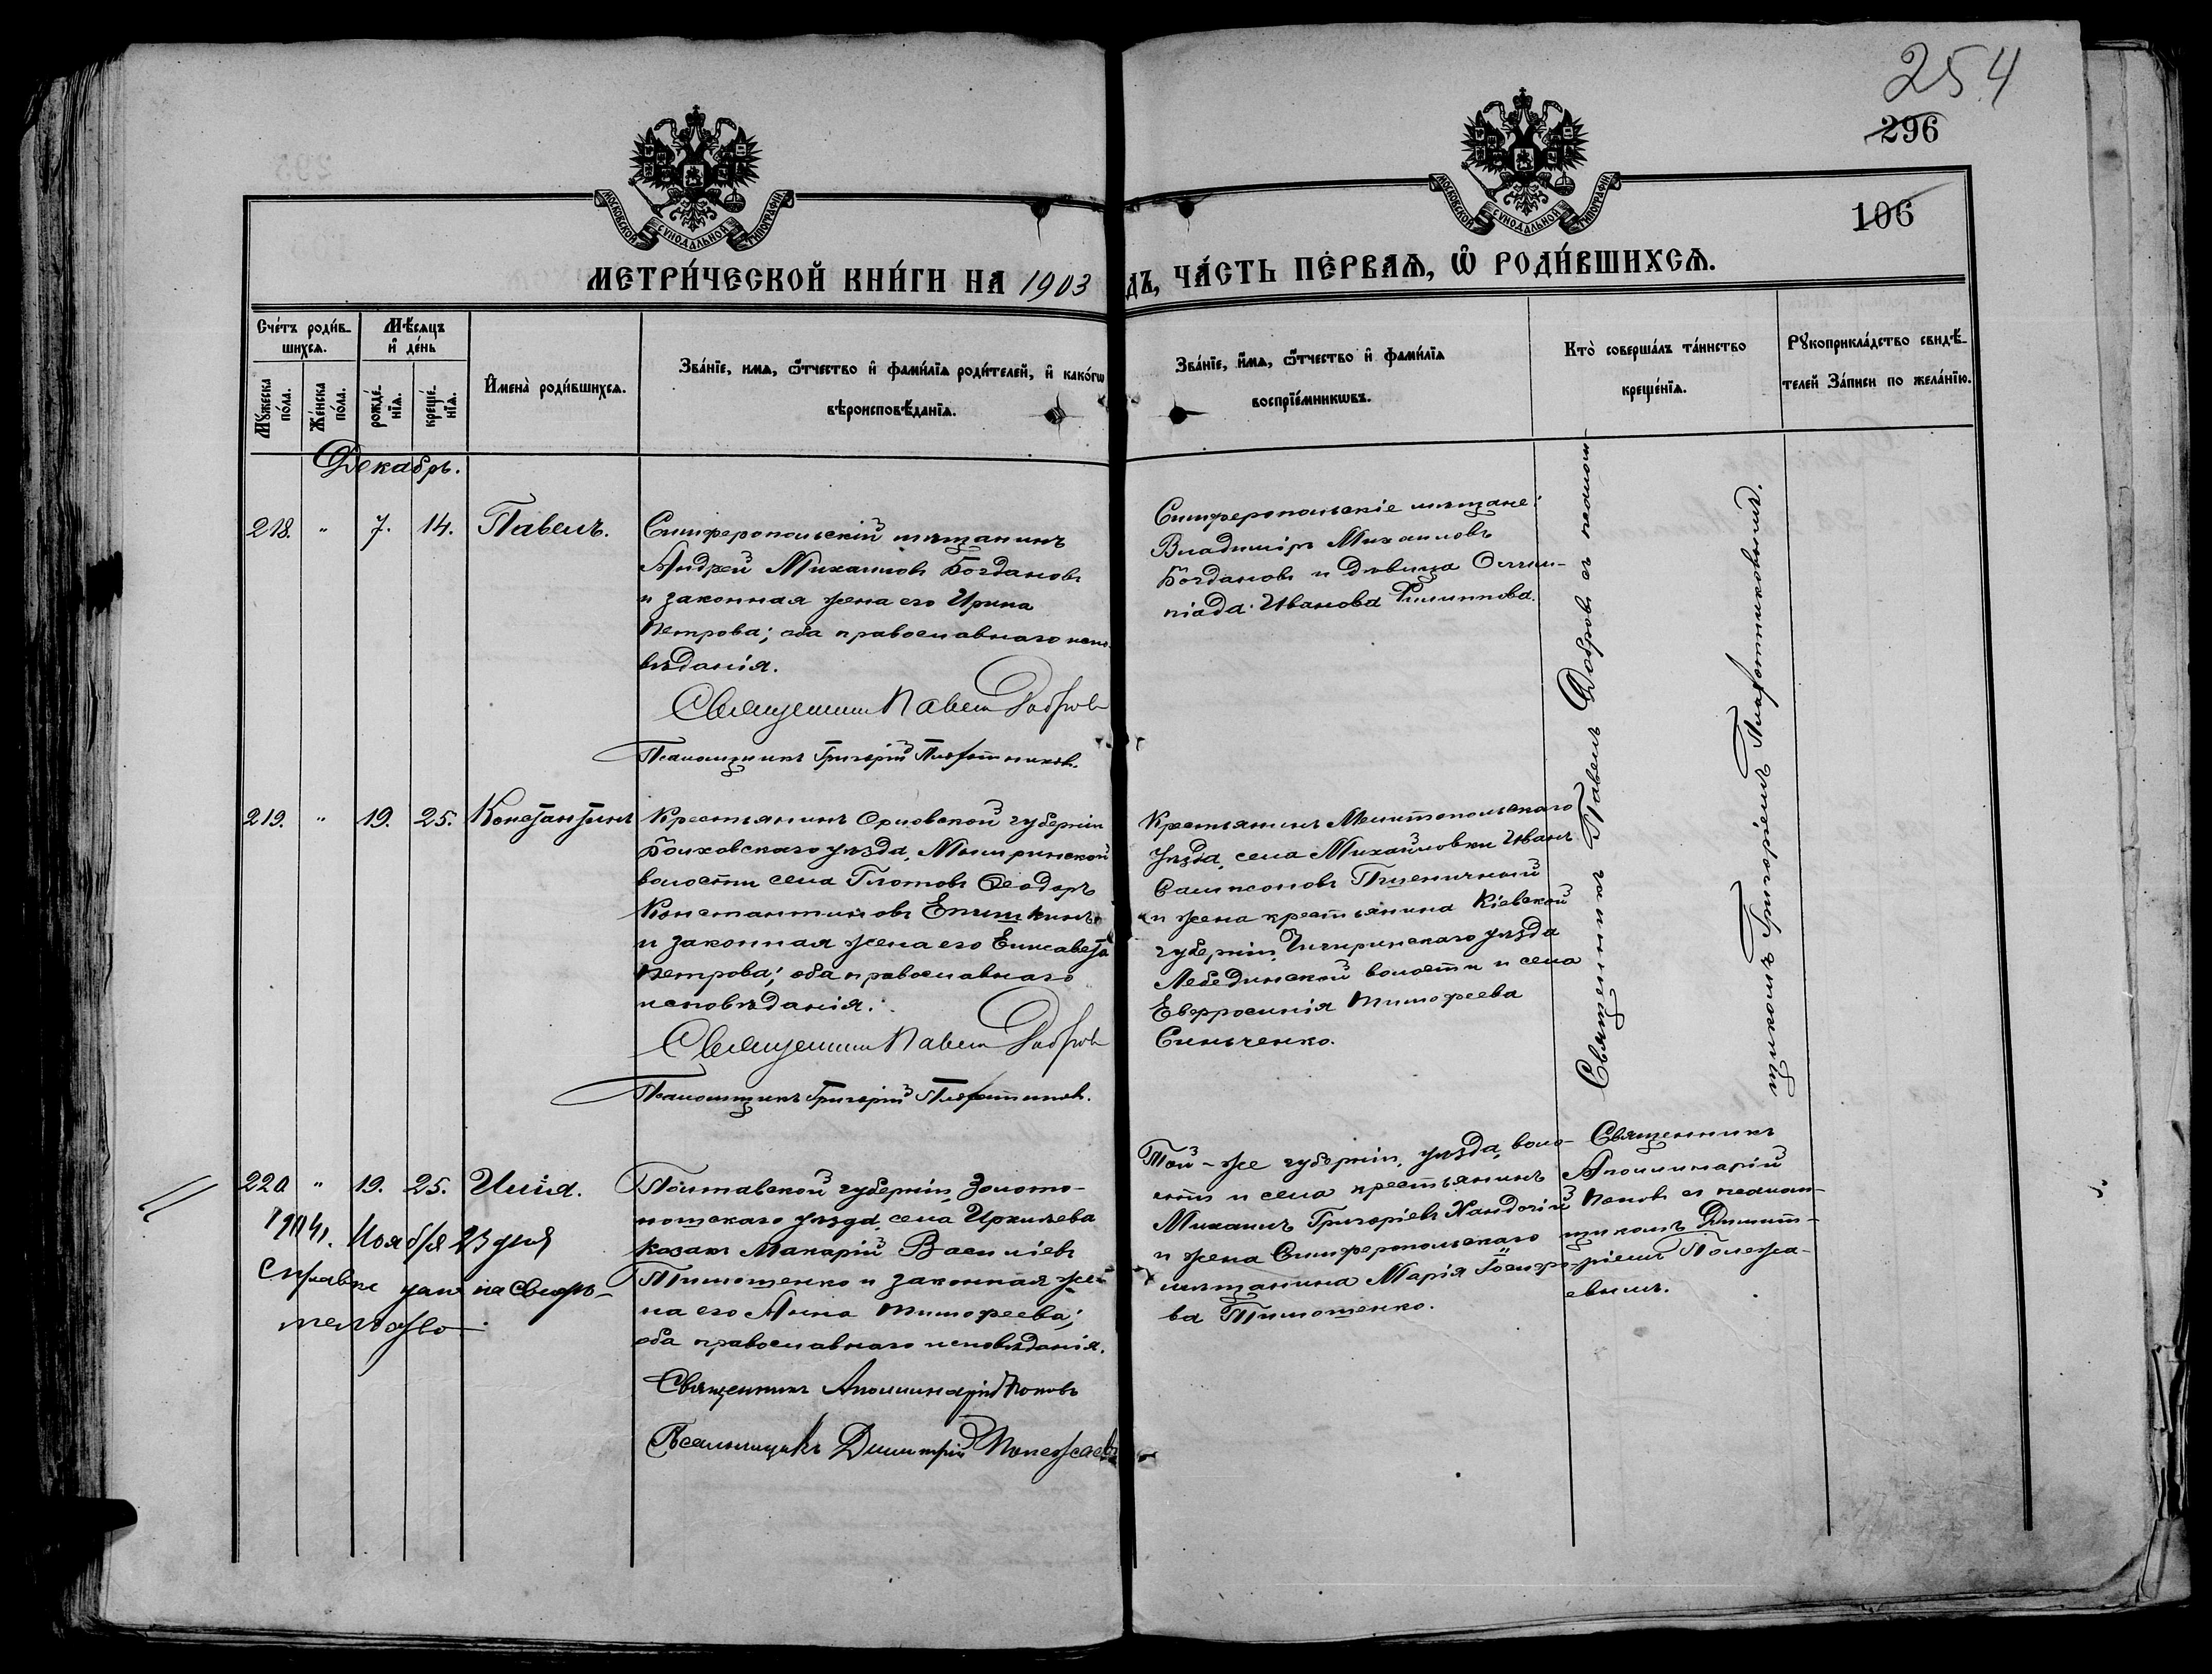 254
296
106
МОСКОВСКОЙ СУНОДАЛЬНОЙ ТИПОГРАФІИ
МОСКОВСКОЙ СУНОДАЛЬНОЙ ТИПОГРАФІИ
МЕТРИ́ЧЕСКОЙ КНИ́ГИ НА 1903
ДЪ, ЧА́СТЬ ПЕ́РВАѦ, Ѡ РОДИ́ВШИХСѦ.
Сче́тъ роди́в-
шихсѧ.
Мѣ́сяцъ
и де́нь
Мꙋ́жеска
по́ла.
Же́нска
по́ла.
рожде́-
нїѧ.
креще́-
нїѧ.
Имена̀ роди́вшихсѧ.
Зва́нїе, имѧ, ѻ́тчество и фами́лїѧ роди́телей, и како́гѡ
вѣроисповѣ́данїѧ.
Зва́нїе, и́мѧ, ѻ́тчество и фами́лїѧ
воспрїе́мникѡвъ.
Кто̀ соверша́лъ та́инство
креще́нїѧ.
Рꙋкоприкла́дство свидѣ́-
телей За́писи по жела́нїю.
Декабрь.
218. " 7. 14. Павелъ.
Симферопольскій мѣщанинъ
Андрей Михаиловъ Богдановъ
и законная жена его Ирина
Петрова; оба православнаго испо-
вѣданія.
Священникъ Павелъ Добровъ
Псаломщикъ Григорій
Симферопольскіе мѣщане:
Владиміръ Михаиловъ
Богдановъ и дѣвица Олим-
піада Иванова Филиппова.
Священникъ Павелъ Добровъ съ псалом-
щикомъ Григоріемъ
219. " 19. 25. Константинъ
Крестьянинъ Орловской губерніи
Болховскаго уѣзда,
волости села Глотова Ѳеодоръ
Константиновъ
и законная жена его Елисавета
Петрова; оба православнаго
исповѣданія.
Священникъ Павелъ Добровъ
Псаломщикъ Григорій
Крестьянинъ Мелитопольскаго
уѣзда, села Михайловки Иванъ
Самсоновъ Пшеничный
и жена крестьянина Кіевской
губерніи, Чигиринскаго уѣзда
Лебединской волости и села
Евфросинія Тимофеева
Синьченко.
220 " 19. 25. Илія.
1904. Ноября 23 дня
справка дана на свидѣ-
тельство
Полтавской губерніи, Золото-
ношскаго уѣзда, села Иркліева
казакъ Макарій Василіевъ
Тимошенко и законная же-
на его Анна Тимофеева;
оба православнаго исповѣданія.
Священникъ Аполлинарій Поповъ
Псаломщикъ Димитрій Полежаевъ
Той-же губерніи, уѣзда, воло-
сти и села крестьянинъ
Михаилъ Григоріевъ
и жена Симферопольскаго
мѣщанина Марія Іосифо-
ва Тимошенко.
Священникъ
Аполлинарій
Поповъ съ псалом-
щикомъ Димит-
ріемъ Полежа-
евымъ.